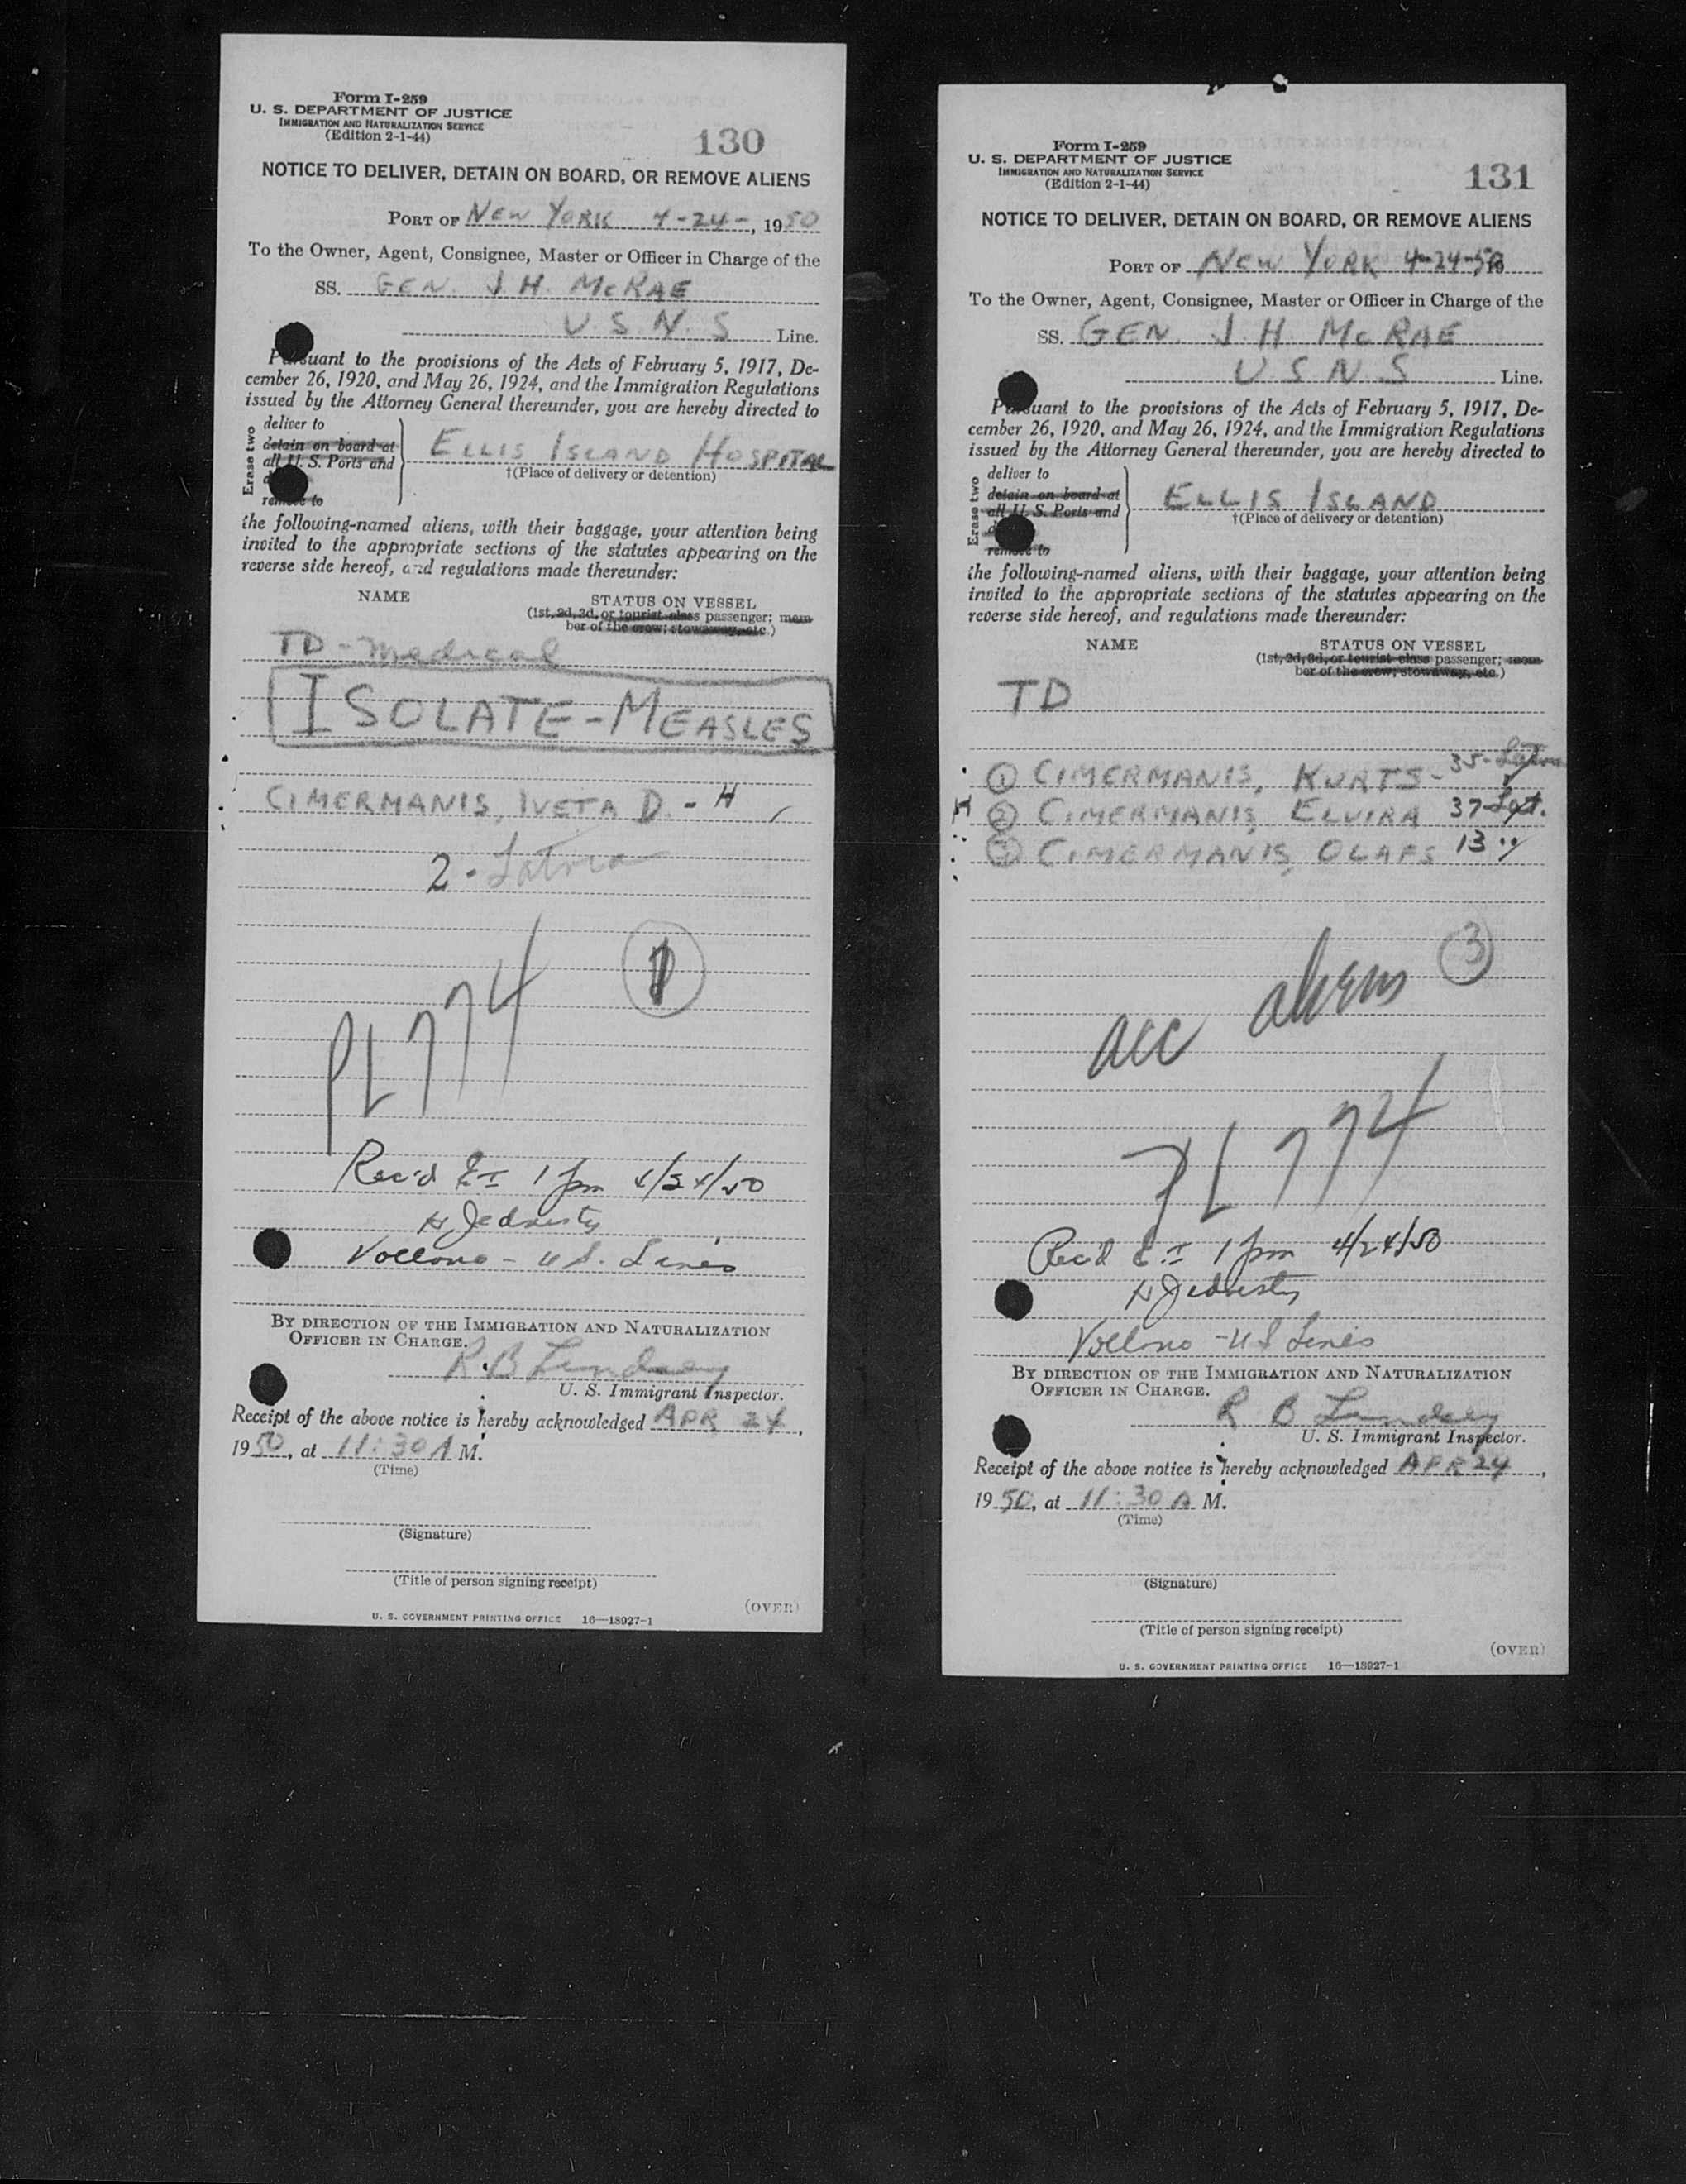 Form I-259
U. S. DEPARTMENT OF JUSTICE
IMMIGRATION AND NATURALIZATION SERVICE
(Edition 2-1-44)
130
NOTICE TO DELIVER, DETAIN ON BOARD, OR REMOVE ALIENS
PORT OF NEW YORK 4-24-, 1950
To the Owner, Agent, Consignee, Master or Officer in Charge of the
SS. GEN. J. H. McRAE
U.S.N.S Line.
Pursuant to the provisions of the Acts of February 5, 1917, De-
cember 26, 1920, and May 26, 1924, and the Immigration Regulations
issued by the Attorney General thereunder, you are hereby directed to
Erase two
deliver to
detain on board at
all U. S. Ports and
remove to
ELLIS ISLAND HOSPITAL
†(Place of delivery or detention)
the following-named aliens, with their baggage, your attention being
invited to the appropriate sections of the statutes appearing on the
reverse side hereof, and regulations made thereunder:
NAME
STATUS ON VESSEL
(1st, 2d, 3d, or tourist class passenger; mem-
ber of the crew; stowaway, etc.)
TD - Medical
ISOLATE-MEASLES
CIMERMANIS, IVETA D. - H
2 - Latvia
1
PL 774
Rec'd EI 1 pm 4/24/50
Vollono - U S. Lines
BY DIRECTION OF THE IMMIGRATION AND NATURALIZATION
OFFICER IN CHARGE.
R.B Lindsey
U. S. Immigrant Inspector.
Receipt of the above notice is hereby acknowledged APR 24,
1950, at 11:30 A M.
(Time)
(Signature)
(Title of person signing receipt)
(OVER)
U. S. GOVERNMENT PRINTING OFFICE 16—18927-1
Form I-259
U. S. DEPARTMENT OF JUSTICE
IMMIGRATION AND NATURALIZATION SERVICE
(Edition 2-1-44)
131
NOTICE TO DELIVER, DETAIN ON BOARD, OR REMOVE ALIENS
PORT OF NEW YORK 4-24-50
To the Owner, Agent, Consignee, Master or Officer in Charge of the
SS. GEN. J. H. McRAE
U S N S Line.
Pursuant to the provisions of the Acts of February 5, 1917, De-
cember 26, 1920, and May 26, 1924, and the Immigration Regulations
issued by the Attorney General thereunder, you are hereby directed to
Erase two
deliver to
detain on board at
all U. S. Ports and
remove to
ELLIS ISLAND
†(Place of delivery or detention)
the following-named aliens, with their baggage, your attention being
invited to the appropriate sections of the statutes appearing on the
reverse side hereof, and regulations made thereunder:
NAME
STATUS ON VESSEL
(1st, 2d, 3d, or tourist class passenger; mem-
ber of the crew; stowaway, etc.)
TD
1 CIMERMANIS, KURTS - 35 - Latvia
H 2 CIMERMANIS, ELVIRA 37 Lat.
3 CIMERMANIS, OLAFS 13 "
acc aliens 3
PL 774
Rec'd EI 1 pm 4/24/50
Vollono - U S Lines
BY DIRECTION OF THE IMMIGRATION AND NATURALIZATION
OFFICER IN CHARGE.
R B Lindsey
U. S. Immigrant Inspector.
Receipt of the above notice is hereby acknowledged APR 24,
1950, at 11:30 A M.
(Time)
(Signature)
(Title of person signing receipt)
(OVER)
U. S. GOVERNMENT PRINTING OFFICE 16—18927-1